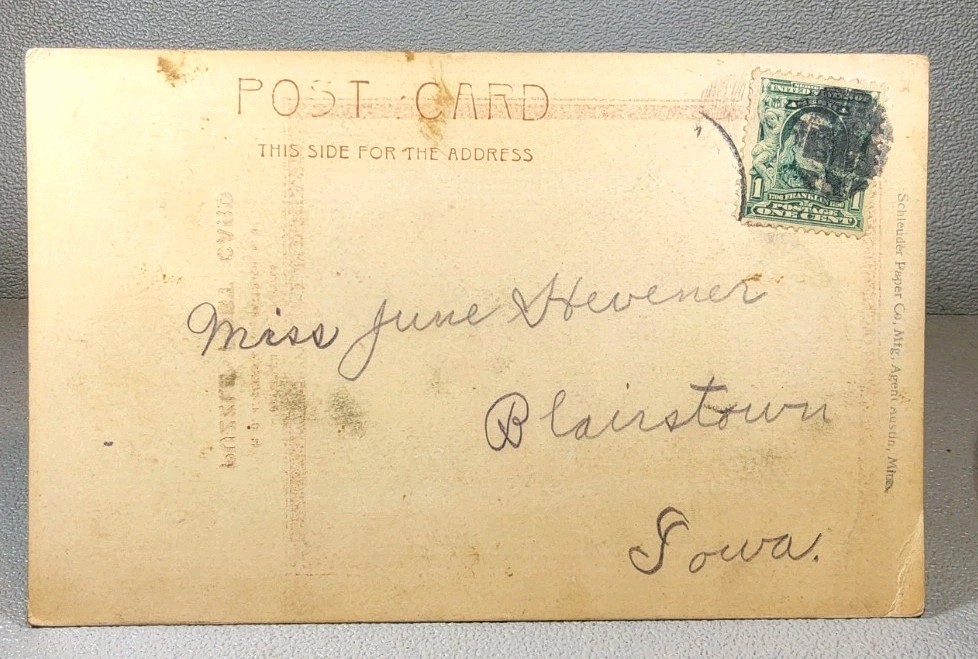 POST CARD
THIS SIDE FOR THE ADDRESS
UNITED
1 1706 FRANKLIN 1790 1
POSTAGE
ONE CENT
Miss June Hevener
Blairstown
Iowa.
Schleuder Paper Co, Mfg. Agent Austin, Minn.